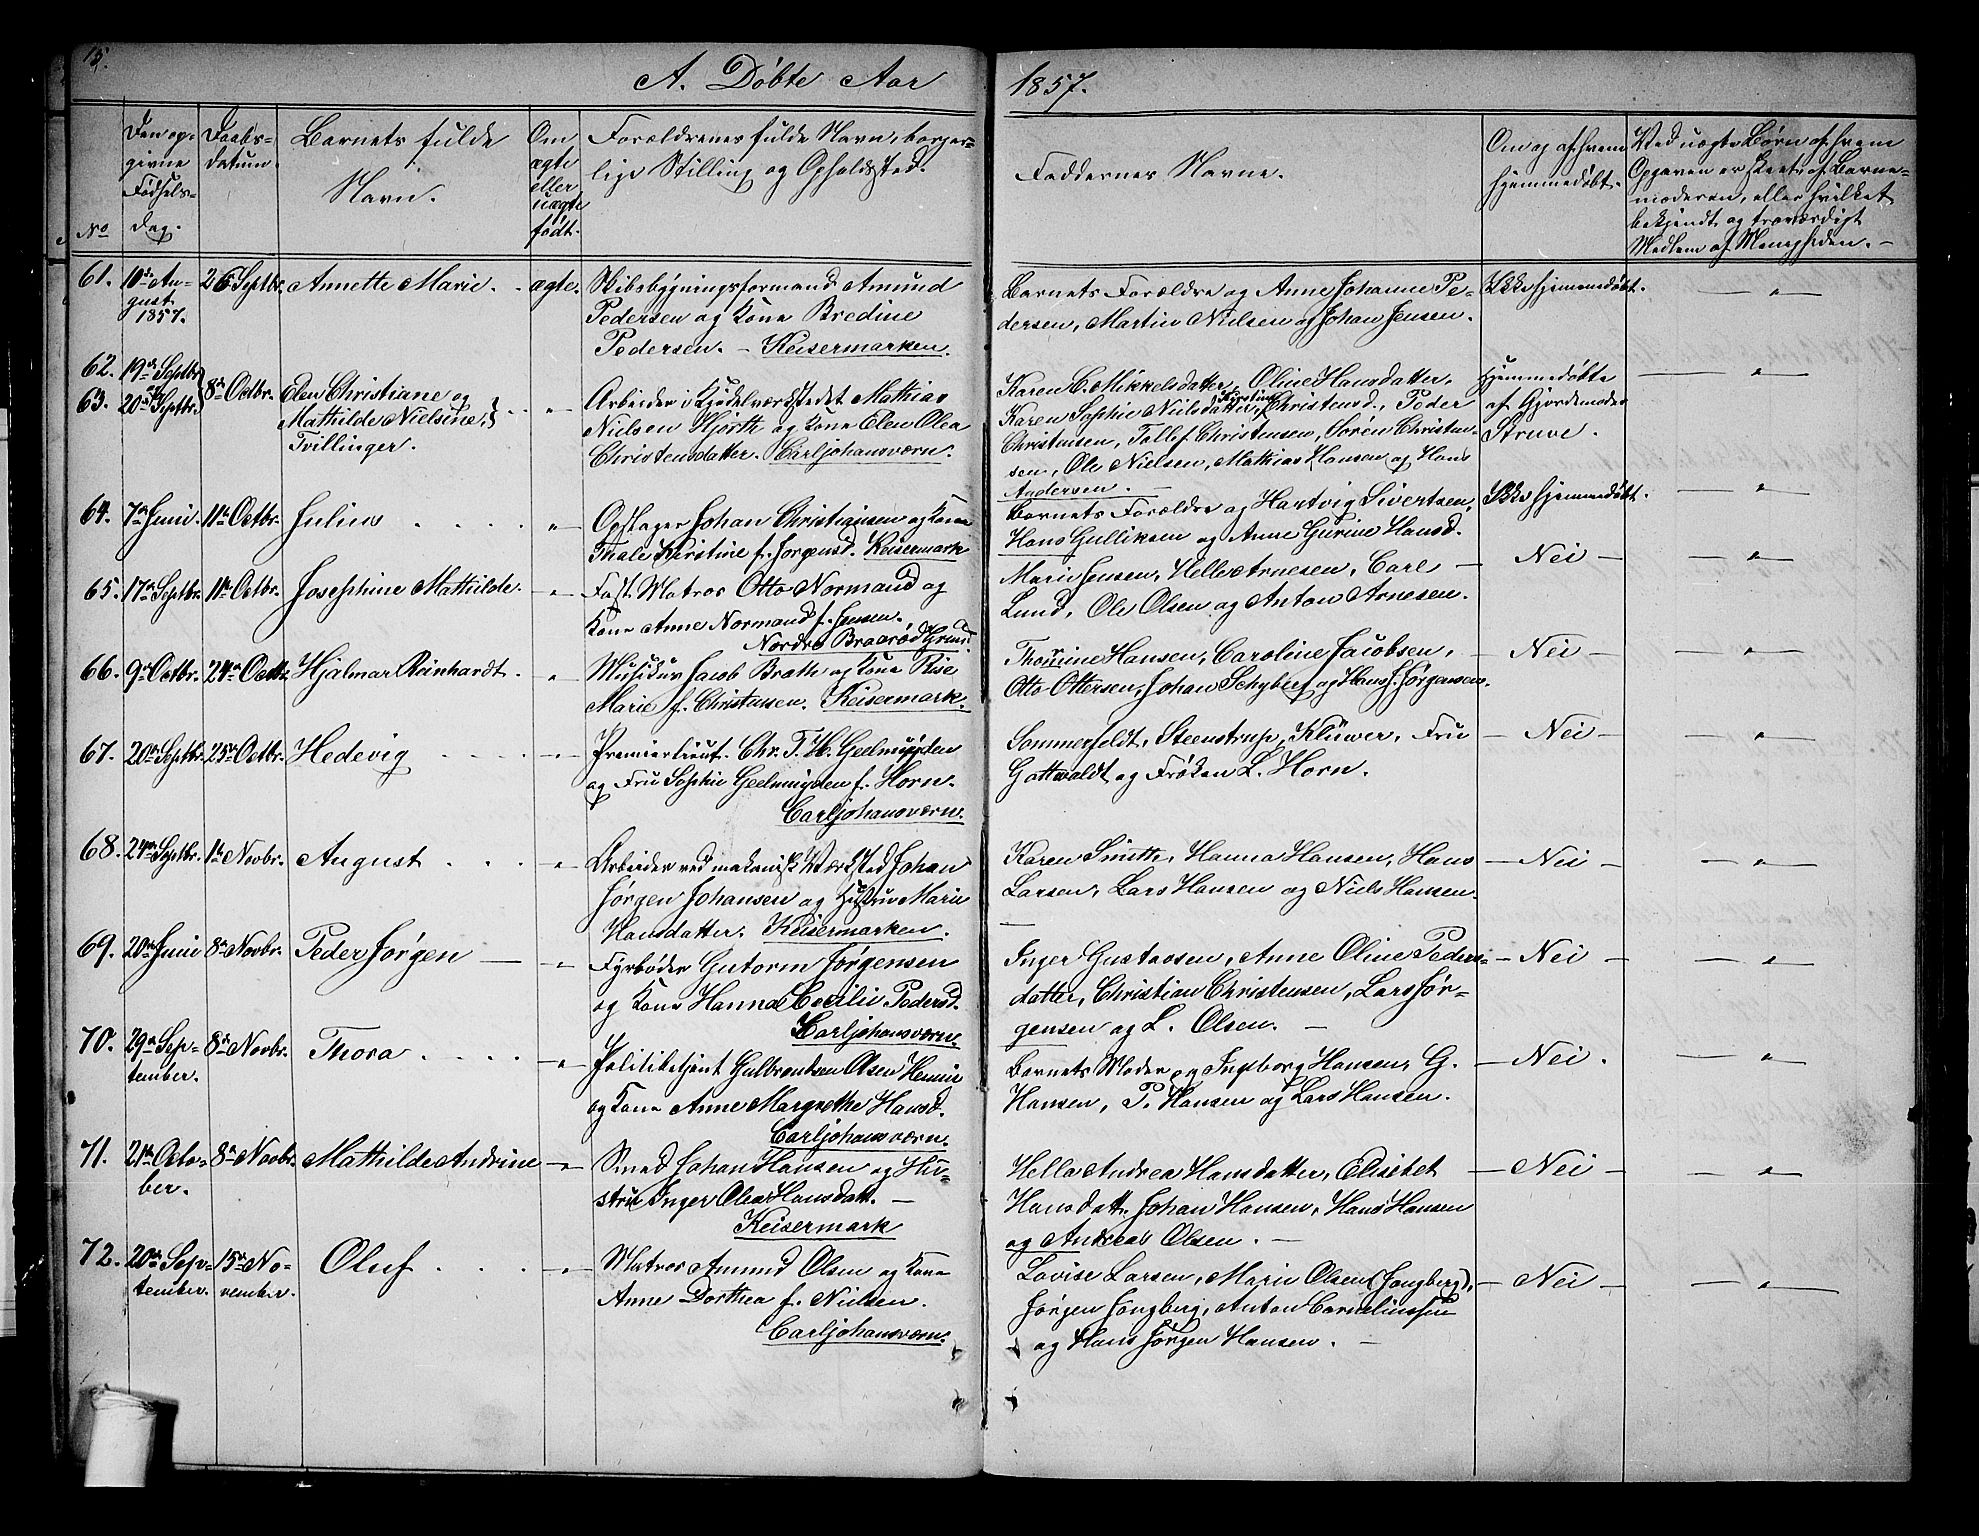 15.
A. Døbte Aar 1857.
No
Den op-
givne
Fødsels-
dag.
Daabs-
datum.
Barnets fulde
Navn.
Om
ægte
eller
uægte
født.
Forældrenes fulde Navn, borger-
lige Stilling og Opholdssted.
Faddernes Navne.
Om og af hvem
hjemmedøbt.
Ved uægte Børn af hvem
Opgaven er skeet, af Barne-
moderen, eller hvilket
bekjendt og troværdigt
Medlem af Menigheden. -
61. 10de Au- 26 Septbr. Annette Marie. ægte. Skibsbygningsformand Amund
gust
1857.
Pedersen og Kone Bredine
Pedersen. - Keisermarken.
Barnets Forældre og Anne Johanne Pe-
dersen, Martin Nielsen og Johan Jensen.
Ikke hjemmedøbt. — " —
62. 19de Septbr.
og
63. 20de Septbr. 8de Octbr. Elen Christiane og
Mathilde Nielsine,
Tvillinger.
" Arbeider i Kjedelværkstedet Mathias
Nielsen Hjorth og Kone Elen Olea
Christensdatter. Carljohansværn.
Karen C. Mikkelsdatter, Oline Hansdatter,
Karen Sophie Nielsdatter, Kirstine Christensd., Peder
Christensen, Tollef Christensen, Søren Christen-
sen, Ole Nielsen, Mathias Hansen og Hans
Andersen. —
Hjemmedøbte
af Gjordemoder
Struve.
— " —
64. 7de Juni. 11te Octbr. Julius . . . . . "
Opslager Johan Christiansen og Kone
Thale Kirstine f. Jørgensd. Keisermark
Barnets Forældre og Hartvig Sivertsen,
Hans Gulliksen og Anne Gurine Hansd.
Ikke hjemmedøbt. — " —
65. 17de Septbr. 11te Octbr. Josephine Mathilde. - "
Fast Matros Otto Normand og
Kone Anne Normand f. Jensen.
Nordre Braarød Grund.
Marie Jensen, Helle Arnesen, Carl
Lund, Ole Olsen og Anton Arnesen.
— Nei — — " —
66. 9de Octbr. 24de Octbr. Hjalmar Reinhardt . "
Musicus Jacob Brath og Kone Rise
Marie f. Christensen. Keisermark.
Thomine Hansen, Caroline Jacobsen,
Otto Ottersen, Johan Schyberg og Hans J. Jørgensen.
— Nei — — " —
67. 20de Septbr. 25de Octbr. Hedevig . . . . "
Premierlieut. Chr. T. H. Geelmuyden
og Fru Sophie Geelmuyden f. Horn.
Carljohansværn.
Sommerfeldt, Steenstrup, Klüwer, Fru
Gottwaldt og Frøken L. Horn.
— Nei — — " —
68. 24de Septbr. 1te Novbr. August . . . "
Arbeider ved mekanisk Værksted Johan
Jørgen Johansen og Hustru Marie
Hansdatter. Keisermarken.
Karen Smith, Hanna Hansen, Hans
Larsen, Lars Hansen og Niels Hansen.
— Nei — — " —
69. 20de Juni 8de Novbr. Peder Jørgen — "
Fyrbøder Gutorm Jørgensen
og Kone Hanna Cecilie Pedersd.
Carljohansværn.
Inger Gustavsen, Anne Oline Peders-
datter, Christian Christensen, Lars Jør-
gensen og L. Olsen. —
— Nei — — " —
70. 29de Sep-
tember. 8de Novbr. Thora . . . . — "
Politibetjent Gulbrandsen Olsen
og Kone Anne Margrethe Hansd.
Carljohansværn.
Barnets Moder og Ingeborg Hansen, G.
Hansen, P. Hansen og Lars Hansen.
— Nei . — " —
71. 21de Octo-
ber. 8de Novbr. Mathilde Andrine — "
Smed Johan Hansen og Hu-
stru Inger Olea Hansdatt. —
Keisermark
Hella Andrea Hansdatter, Elisebet
Hansdatt. Johan Hansen, Hans Hansen
og Andreas Olsen. —
— Nei — — " —
72. 20de Sep-
tember. 15de No-
vember. Oluf . . . — "
Matros Amund Olsen og Kone
Anne Dorthea f. Nielsen.
Carljohansværn.
Lovise Larsen, Marie Olsen (Jongberg),
Jørgen Jongberg, Anton Corneliussen
og Hans Jørgen Hansen. —
— Nei — — " —